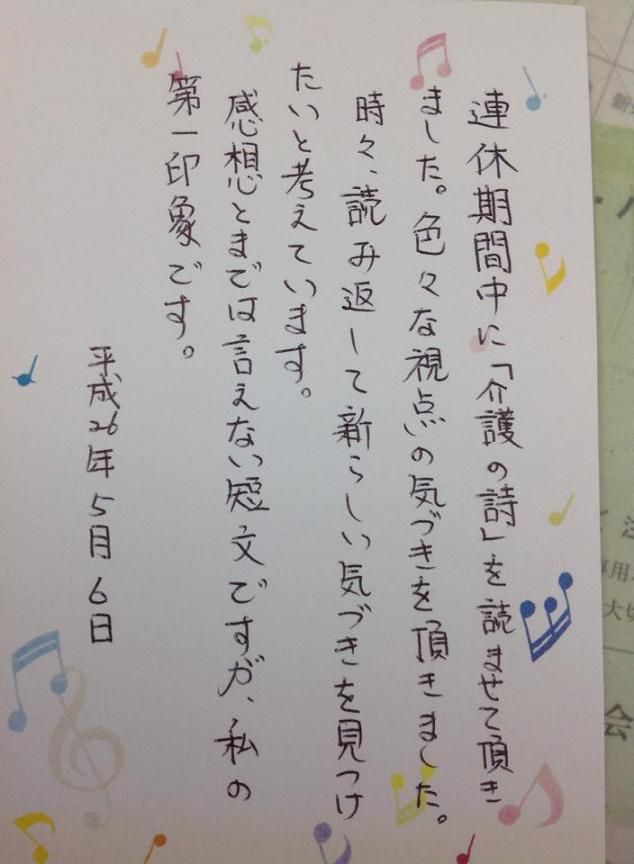 連休期間中に「介護の詩」を読ませて頂き
ました。色々な視点の気づきを頂きました。
時々、読み返して新らしい気づきを見つけ
たいと考えています。
感想とまでは言えない短文ですが、私の
第一印象です。
平成26年5月6日
専用
大切
会